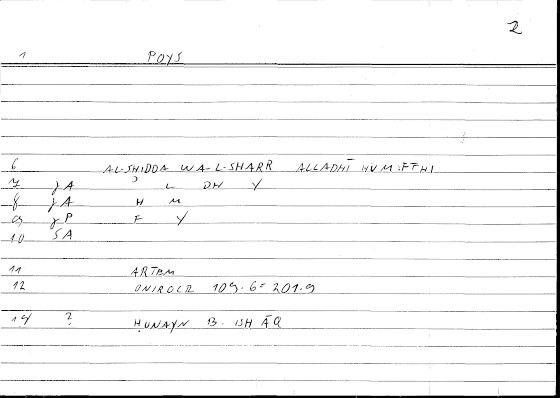 2
1 POYS
6 AL-SHIDDA WA-L-SHARR ALLADHĪ HUM FTHI
7 γA ʾ L DH Y
8 γA H M
9 γP F Y
10 SA
11 ARTEM
12 ONIROCR 109.6 = 201.9
14 ? ḤUNAYN B. ISḤĀQ